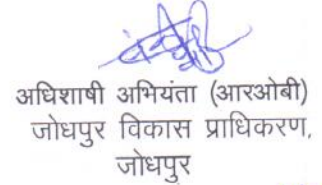 अधिशाषी अभियंता (आरओबी)
जोधपुर विकास प्राधिकरण,
जोधपुर